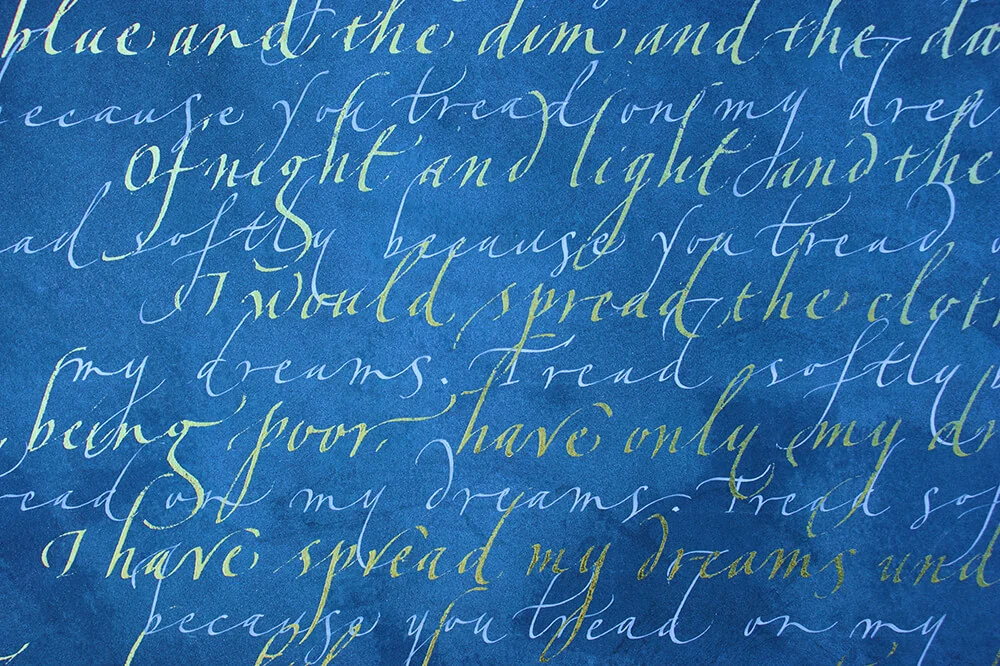 blue and the dim and the da
because you tread on my drea
Of night and light and the
ad softly because you tread
I would spread the clot
my dreams. Tread softly
being poor, have only my dr
read on my dreams. Tread sof
I have spread my dreams und
because you tread on my